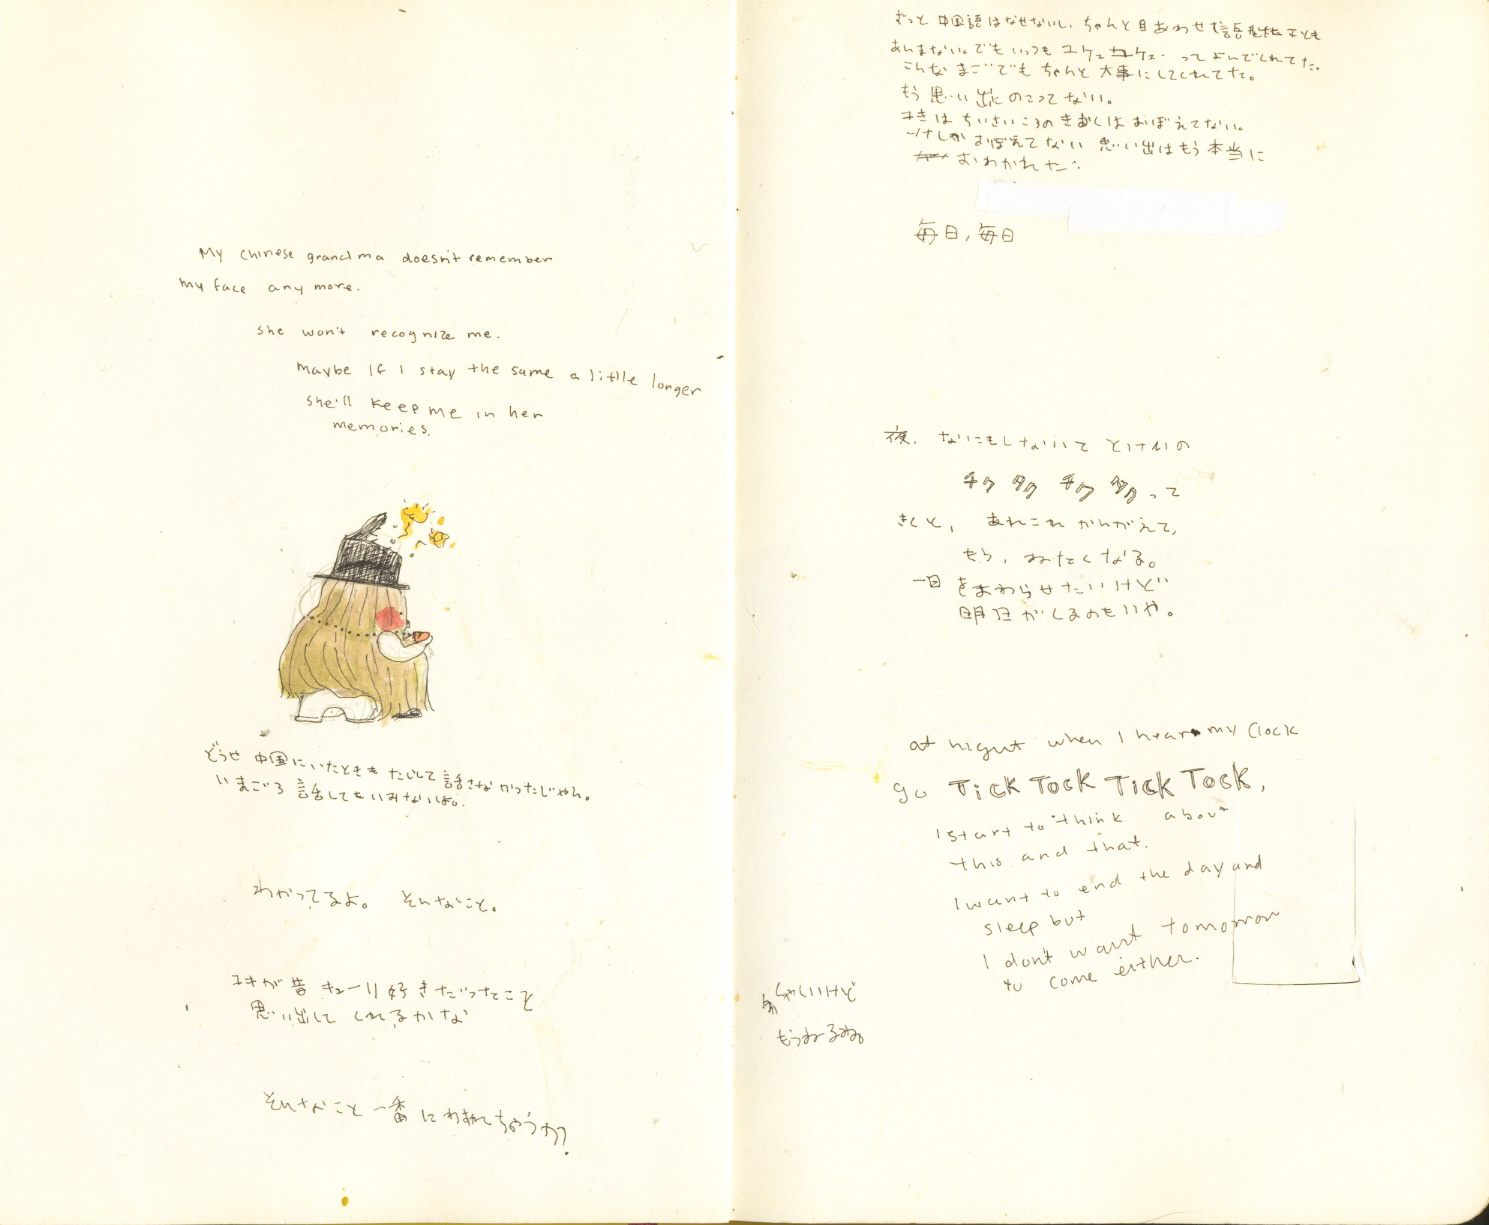 My chinese grandma doesn't remember
my face any more.
she won't recognize me.
maybe if I stay the same a little longer
she'll keep me in her
memories.
どうせ 中国にいたときも たいして 話さなかったじゃん。
いまごろ 話してもいみないよ。
わかってるよ。 そんなこと。
ユキが昔 キューリ 好きだったこと
思い出して くれるかな
そんなこと 一番に わすれちゃうか?
ずっと 中国語はなせないし、ちゃんと 目あわせて
あんまない。でも いつも ってよんでくれてた。
こんな まごでも ちゃんと 大事にしてくれてた。
もう 思い出に のこってない。
ユキは ちいさいころの きおくは おぼえてない。
しか おぼえてない 思い出は もう 本当に
おわかれだ
毎日,毎日
夜、なにもしないいて とけいの
チク タク チク タク って
きくと、 あれこれ かんがえて、
もう、ねたくなる。
一日 をおわらせたいけど
明日がくるのもいや。
at night when I hear my Clock
go TICK TOCK TICK TOCK,
I start to think about
this and that.
I want to end the day and
sleep but
I don't want tomorrow
to come either.
けど
もうねるね。